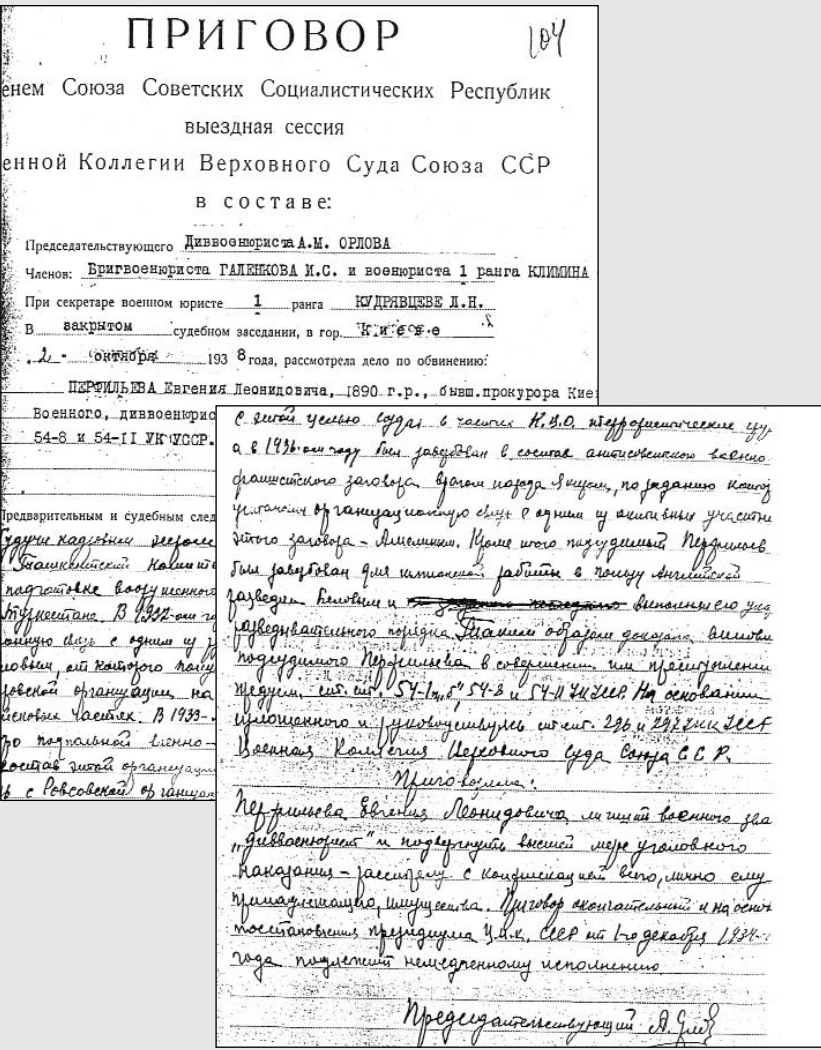 ПРИГОВОР
104
енем Союза Советских Социалистических Республик
выездная сессия
енной Коллегии Верховного Суда Союза ССР
в составе:
Председательствующего Диввоенюриста А.М. ОРЛОВА
Членов: Бригвоенюриста ГАЛЕНКОВА И.С. и военюриста 1 ранга КЛИМИНА
При секретаре военном юристе 1 ранга КУДРЯВЦЕВЕ Л.Н.
В закрытом судебном заседании, в гор. Киеве
"2" октября 1938 года, рассмотрела дело по обвинению:
ПЕРФИЛЬЕВА Евгения Леонидовича, 1890 г.р., бывш.прокурора Кие
Военного, диввоенюрис
54-8 и 54-11 УК УССР.
Предварительным и судебным след
Будучи кадровым
Ташкентский
подготовке вооруженного
Туркестана. В 1932-ом г
связь с одним из
от которого
организации на
частях. В 1933-
подпольной военно-
состав этой организации
с Ровсовской организа
с этой целью создал в частях К.В.О. террористическую гру
а в 1936-ом году был завербован в состав антисоветского военно
фашистского заговора врагом народа Якиром, по заданию котор
организационную связь с одним из активных участни
этого заговора – Амелиным. Кроме того подсудимый Перфильев
был завербован для шпионской работы в пользу Английской
разведки Беловым и выполнял его
разведывательного порядка. Таким образом доказана виновн
подсудимого Перфильева в совершении им преступлений
предусм. ст.ст. 54-1 п. "б", 54-8 и 54-11 УК УССР. На основании
изложенного и руководствуясь ст.ст. 296 и 297 УПК УССР
Военная Коллегия Верховного Суда Союза ССР.
Приговорила:
Перфильева Евгения Леонидовича лишить военного зва
"диввоенюрист" и подвергнуть высшей мере уголовного
наказания – расстрелу с конфискацией всего, лично ему
принадлежащего, имущества. Приговор окончательный и на основ
постановления президиума Ц.И.К. СССР от 1-го декабря 1934-
года подлежит немедленному исполнению.
Председательствующий А. Орлов